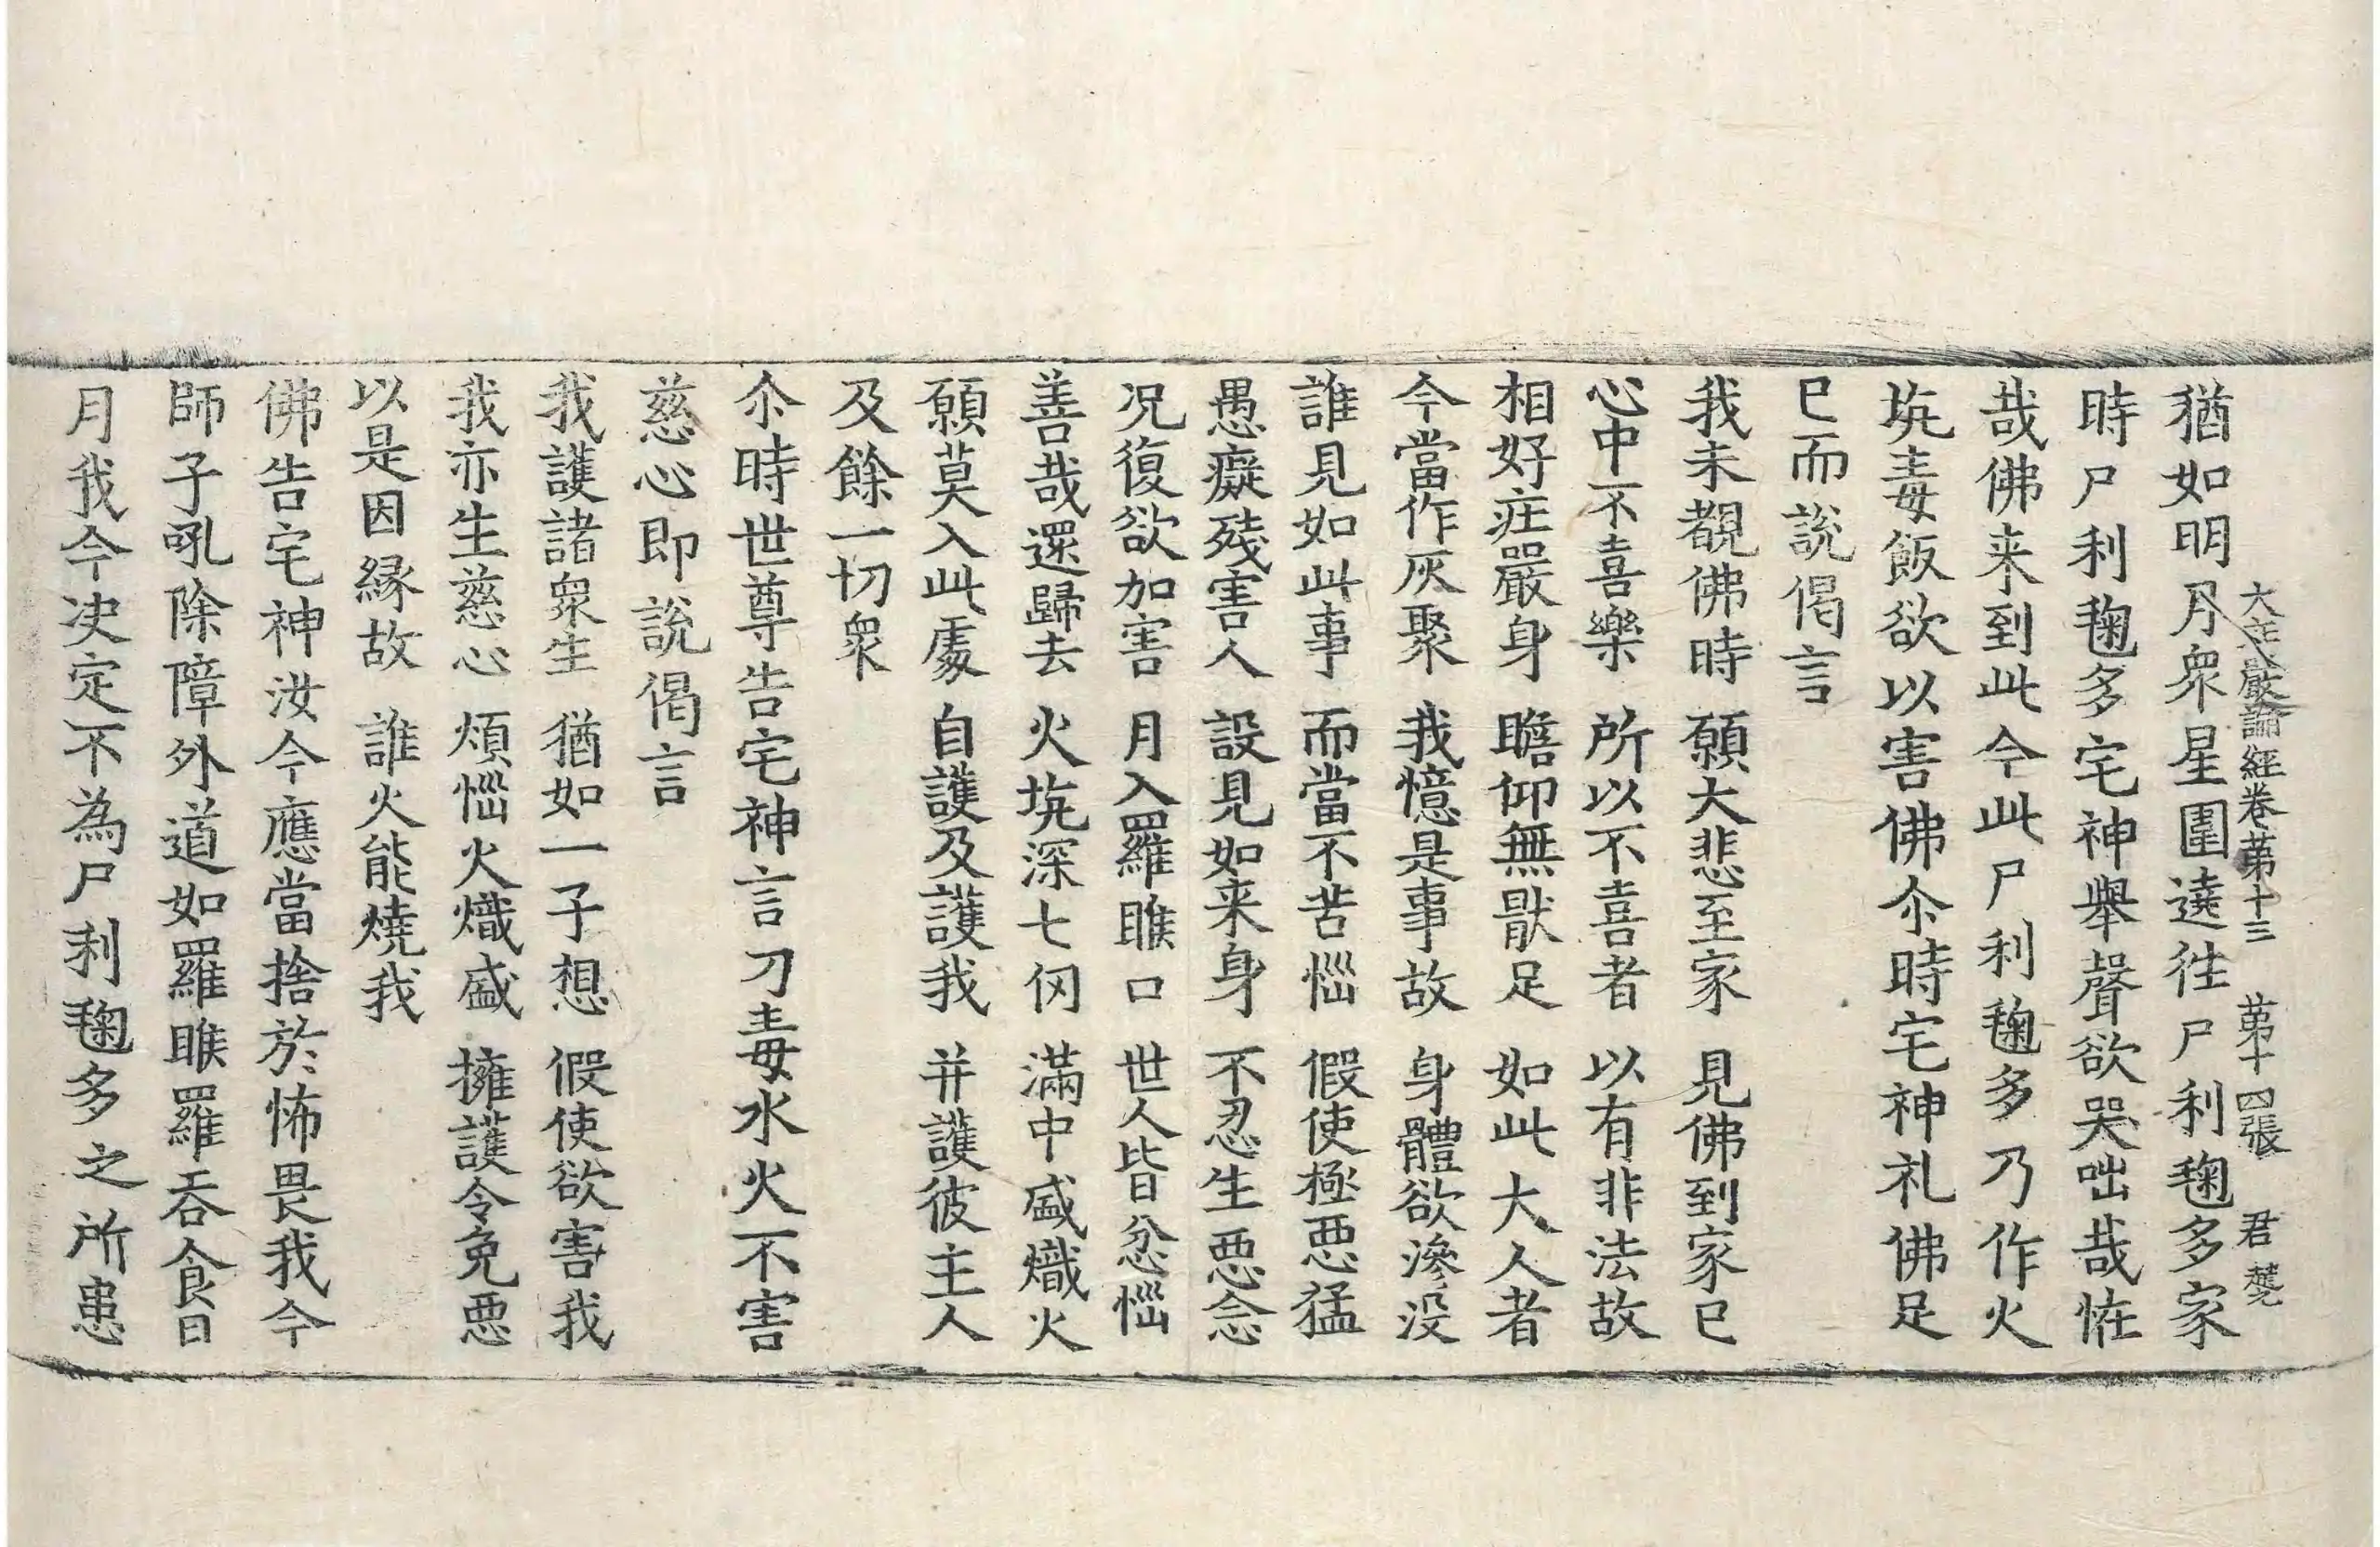 大庄嚴論經卷第十三 第十四張 君
猶如明月衆星圍遶往尸利毱多家
時尸利毱多宅神舉聲欲哭咄哉恠
哉佛来到此今此尸利毱多乃作火
坑毒飯欲以害佛尒時宅神礼佛足
已而說偈言
我未覩佛時 願大悲至家 見佛到家已
心中不喜樂 所以不喜者 以有非法故
相好庄嚴身 瞻仰無猒足 如此大人者
今當作灰聚 我憶是事故 身體欲滲没
誰見如此事 而當不苦惱 假使極惡猛
愚癡残害人 設見如来身 不忍生惡念
况復欲加害 月入羅睺口 世人皆忿惱
善哉還歸去 火坑深七仞 滿中盛熾火
願莫入此處 自護及護我 并護彼主人
及餘一切衆
尒時世尊告宅神言刀毒水火不害
慈心即說偈言
我護諸衆生 猶如一子想 假使欲害我
我亦生慈心 煩惱火熾盛 擁護令免惡
以是因緣故 誰火能燒我
佛告宅神汝今應當捨於怖畏我今
師子吼除障外道如羅睺羅吞食日
月我今决定不為尸利毱多之所患